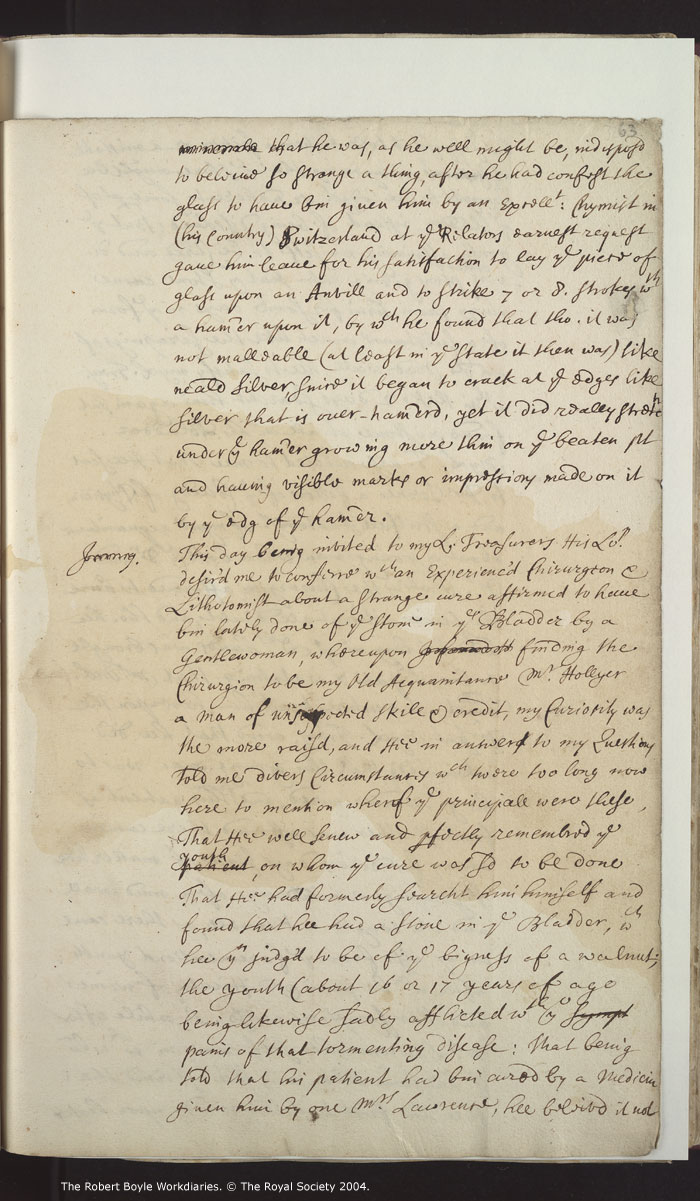 63
that he was, as he well might be, indispos'd
to beleive so strange a thing, after he had confest the
glass to haue bin given him by an Excellt: Chymist in
(his Country) Switzerland at ye Relators earnest request
gaue him leaue for his satisfaction to lay ye piece of
glass upon an Anvill and to strike 7 or 8. strokes wth
a ham̄er upon it, by wch he found that tho. it was
not malleable (at least in ye state it then was) like
neald Silver since it began to crack at ye edges like
silver that is over-ham̄erd, yet it did really stretch
under ye ham̄er growing more thin on ye beaten pt
and hauing visible marks or impressions made on it
by ye edg of ye ham̄er.
This day being invited to my L. Treasurers His Lp.
desir'd me to conferre wth an Experienc'd Chirurgeon &
Lithotomist about a strange cure affirmed to haue
bin lately done of ye stone in ye Bladder by a
Gentlewoman, whereupon finding the
Chirurgion to be my Old Acquaintance Mr. Hollyer
a man of unsuspected skill & credit, my Curiosity was
the more raisd, and Hee in answer to my Questions
told me divers Circumstances wch twere too long now
here to mention wherof ye principall were these,
That Hee well knew and pfectly remembred ye
youth
patient, on whom ye cure was sd to be done
That Hee had formerly searcht him himself and
found that hee had a stone in ye Bladder, wch
hee yn judg'd to be of ye bigness of a walnut;
the youth (about 16 or 17 years of age
being likewise sadly afflicted wth ye Sympt
pains of that tormenting disease: That being
told that his patient had bin cured by a Medicin
given him by one Mrs Lawrence, hee beleivd it not
The Robert Boyle Workdiaries. © The Royal Society 2004.